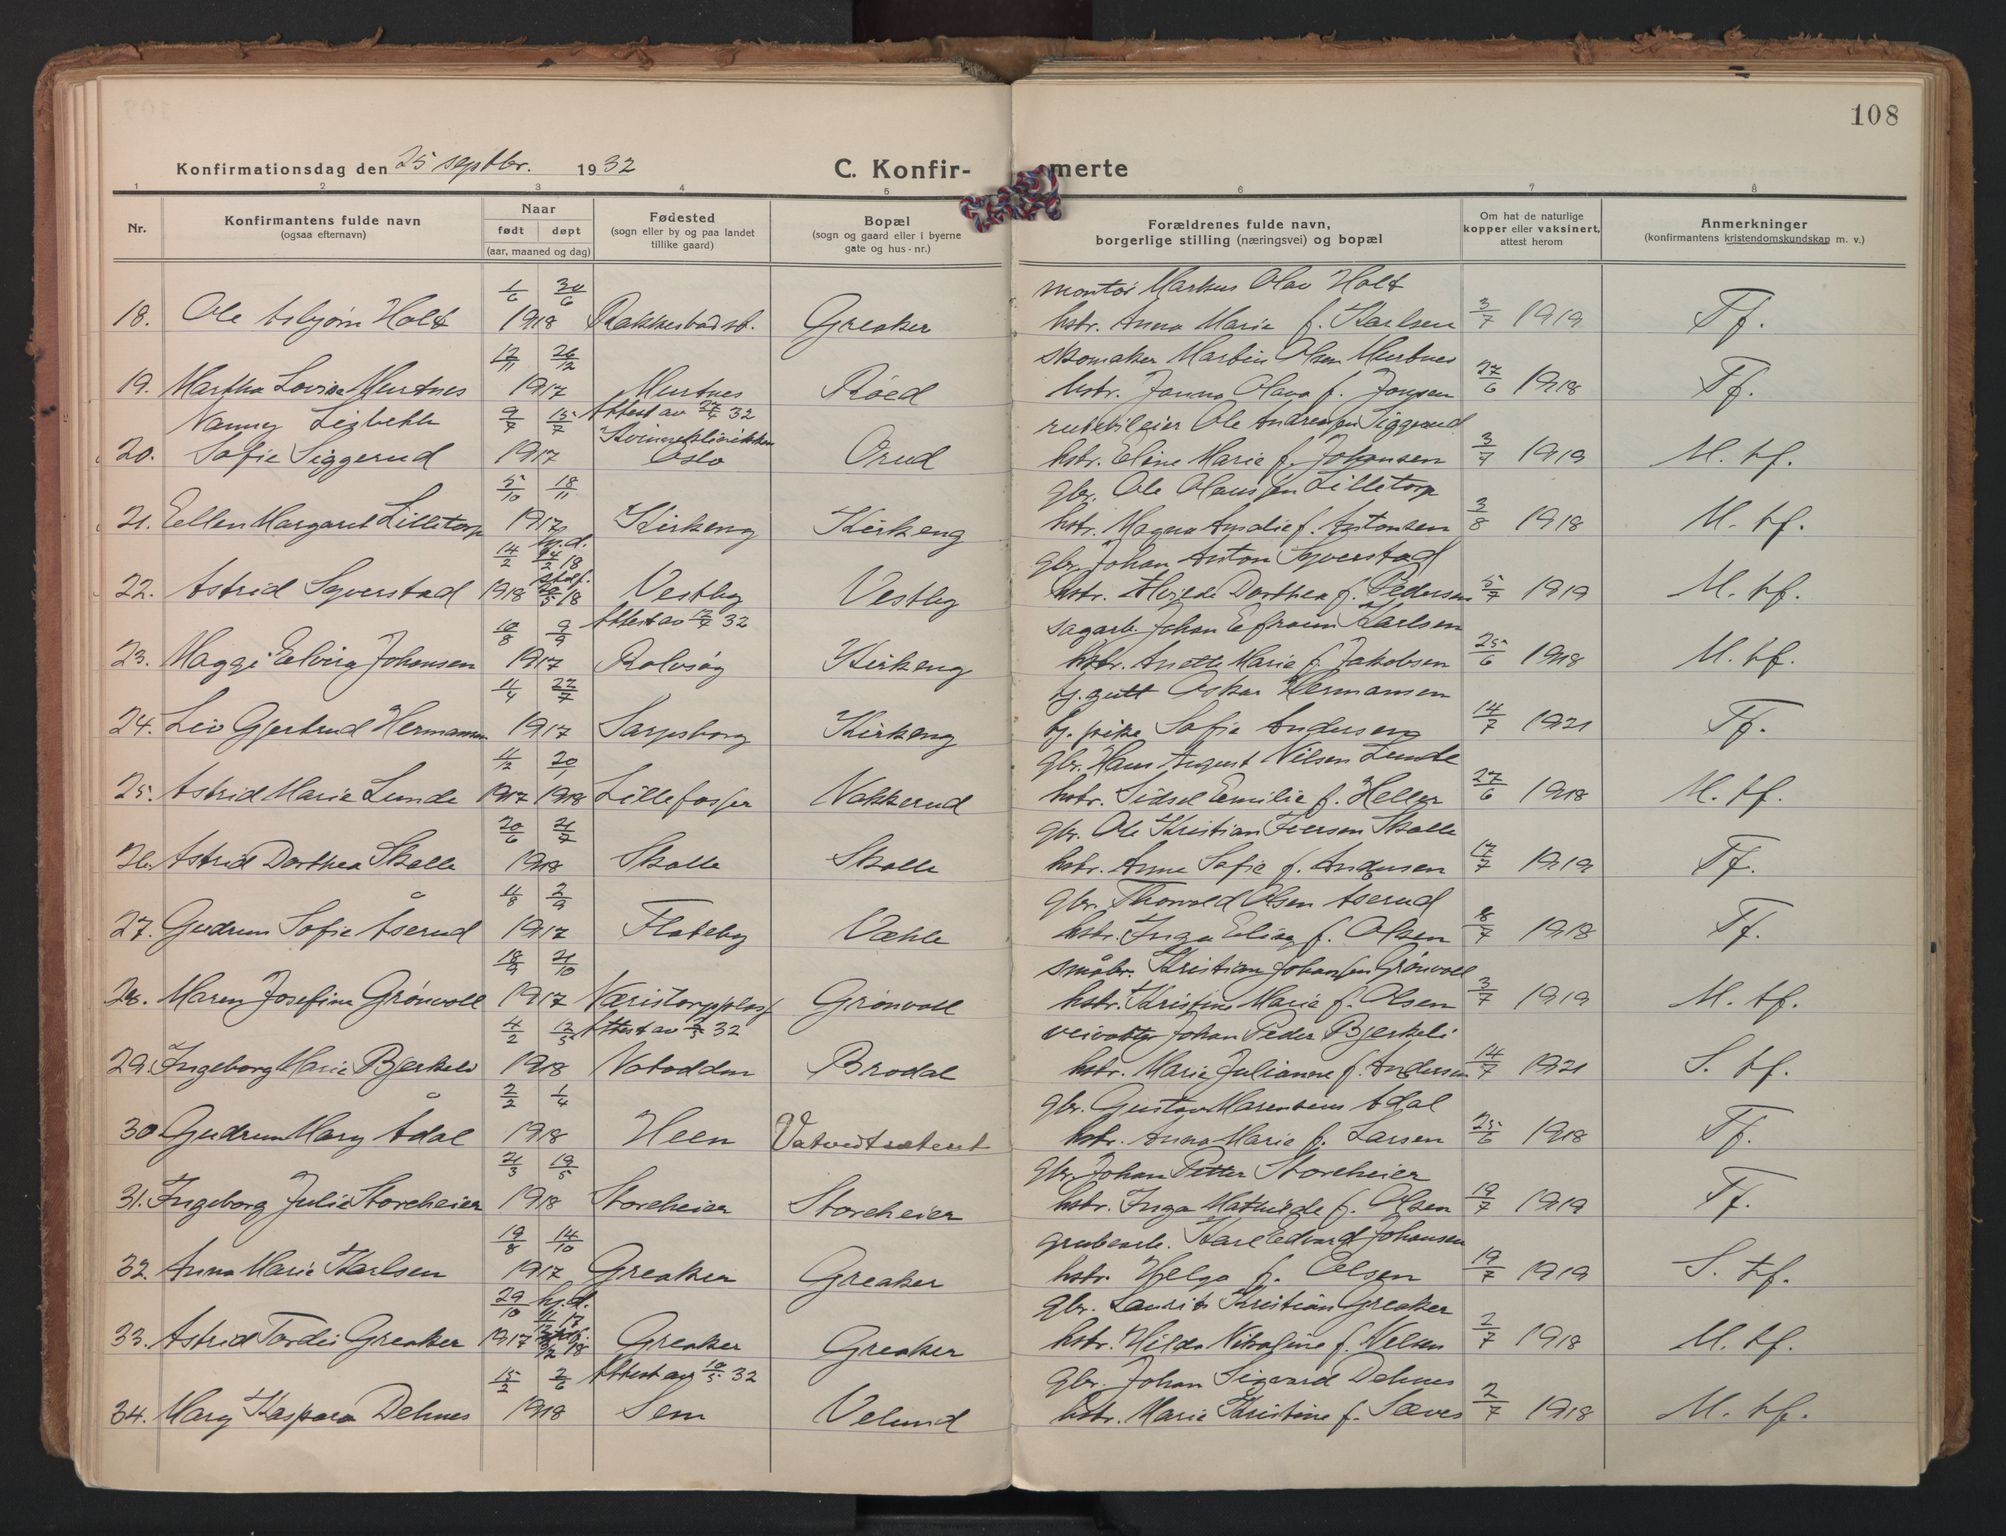 108
Konfirmationsdag den 25 septbr. 1932
C. Konfir- merte
1 2 3 4 5 6 7 8
Nr.
Konfirmantens fulde navn
(ogsaa efternavn)
Naar
født døpt
(aar, maaned og dag)
Fødested
(sogn eller by og paa landet
tillike gaard)
Bopæl
(sogn og gaard eller i byerne
gate og hus-nr.)
Forældrenes fulde navn,
borgerlige stilling (næringsvei) og bopæl
Om hat de naturlige
kopper eller vaksinert,
attest herom
Anmerkninger
(konfirmantens kristendomskundskap m. v.)
1/6 30/6 montør Markus Olav Holt
18. Ole Asbjørn Holt 1918 Rakkestad st. Greaker hstr. Anna Marie f. Karlsen 3/7 1919 Tf.
12/11 26/12 skomaker Martin Olsen Murtnes
19. Martha Lovise Murtnes 1917 Murtnes Røed hstr. Janna Olava f. Jonsen 27/6 1918 Tf.
Nanny Lizbeth 9/7 15/7 Attest av 27/4 32 rutebileier Ole Andreassen Siggerud
20. Sofie Siggerud 1917 Kvinneklinikken Oslo Orud hstr. Eline Marie f. Johansen 3/7 1919 M. tf.
5/10 18/11 gbr. Ole Olaussen Lilletorp
21. Ellen Margaret Lilletorp 1917 Kirkeng Kirkeng hstr. Magna Amalie f. Antonsen 3/8 1918 M. tf.
14/2 hj.d. 24/2 18 gbr. Johan Anton Syverstad
22. Astrid Syverstad 1918 stadf. 18 Vestby Vestby hstr. Dorthea f. Pedersen 5/7 1919 M. tf.
10/8 9/9 Attest av 12/7 32 sagarb. Johan Efraim Karlsen
23. Maggi Elvira Johansen 1917 Rolvsøy Kirkeng hstr. Anette Marie f. Jakobsen 25/6 1918 M. tf.
4/4 22/7 tj. gutt Oskar Hermansen
24. Liv Gjertrud Hermansen 1917 Sarpsborg Kirkeng tj. pike Sofie Andersen 14/7 1921 Tf.
4/12 20/1 gbr. Hans August Nilsen Lunde
25. Astrid Marie Lunde 1917 1918 Lillefosser Nakkerud hstr. Sidsel Emilie f. Heller 27/6 1918 M. tf.
20/6 21/7 gbr. Ole Kristian Iversen Skolle
26. Astrid Dorthea Skolle 1918 Skolle Skolle hstr. Anne Sofie f. Andersen 17/7 1919 Tf.
4/8 2/9 gbr. Thorvald Olsen Aserud
27. Gudrun Sofie Åserud 1917 Flateby Væhle hstr. Inga Elise f. Olsen 8/7 1918 Tf.
18/9 21/10 småbr. Kristian Johansen Grønvoll
28. Maren Josefine Grønvoll 1917 Næristorpplass Grønvoll hstr. Kristine Marie f. Olsen 3/7 1919 M. tf.
4/2 12/5 Attest av 2/5 32 veivokter Johan Peder Bjerkeli
29. Ingeborg Marie Bjerkeli 1918 Notodden Brodal hstr. Marie Julianne f. Andersen 14/7 1921 S. tf.
2/2 1/4 gbr. Gustav Marentius Adal
30 Gudrun Mary Ådal 1918 Heen Vatvedtseteret hstr. Anna Marie f. Larsen 25/6 1918 Tf.
21/3 19/5 gbr. Johan Petter Storeheier
31. Ingeborg Julie Storeheier 1918 Storeheier Storeheier hstr. Inga Mathilde f. Olsen 19/7 1919 Tf.
19/8 14/10 grubearb. Karl Edvard Johansen
32. Anna Marie Karlsen 1917 Greaker Greaker hstr. Helga f. Olsen 19/7 1919 S. tf.
29/10 hj.d. 17 gbr. Laurits Kristian Greaker
33. Astrid Tordis Greaker 1917 18 Greaker Greaker hstr. Hilda Nikoline f. Nilsen 2/7 1918 M. tf.
15/2 2/6 Attest av 10/5 32 gbr. Johan Sigvard Dehnes
34. Mary Kaspara Dehnes 1918 Sem Velund hstr. Marie Kristine f. Sæves 2/7 1918 M. tf.